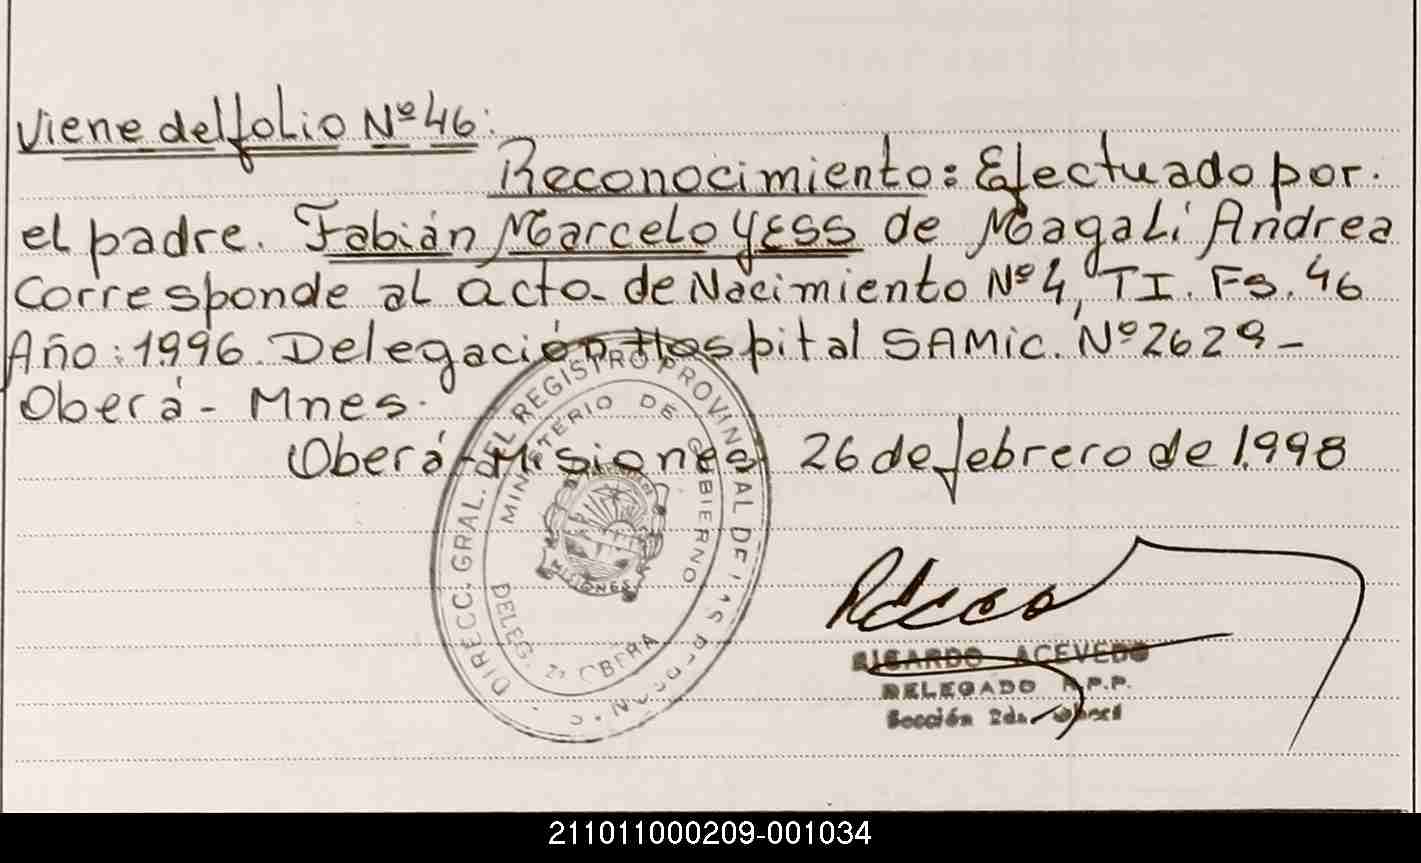 Viene del folio Nº 46:
Reconocimiento: Efectuado por.
el padre. Fabián Marcelo YESS de Magali Andrea
Corresponde al acta de Nacimiento Nº 4, TI. Fs. 46
Año: 1.996. Delegación Hospital SAMic. Nº 2629-
Oberá - Mnes.
Oberá - Misiones 26 de febrero de 1.998
DIRECC. GRAL. DEL REGISTRO PROVINCIAL DE LAS PERSONAS
MINISTERIO DE GOBIERNO
MISIONES
DELEG. 2ª OBERA
RICARDO ACEVEDO
DELEGADO R.P.P.
Sección 2da. Oberá
211011000209-001034